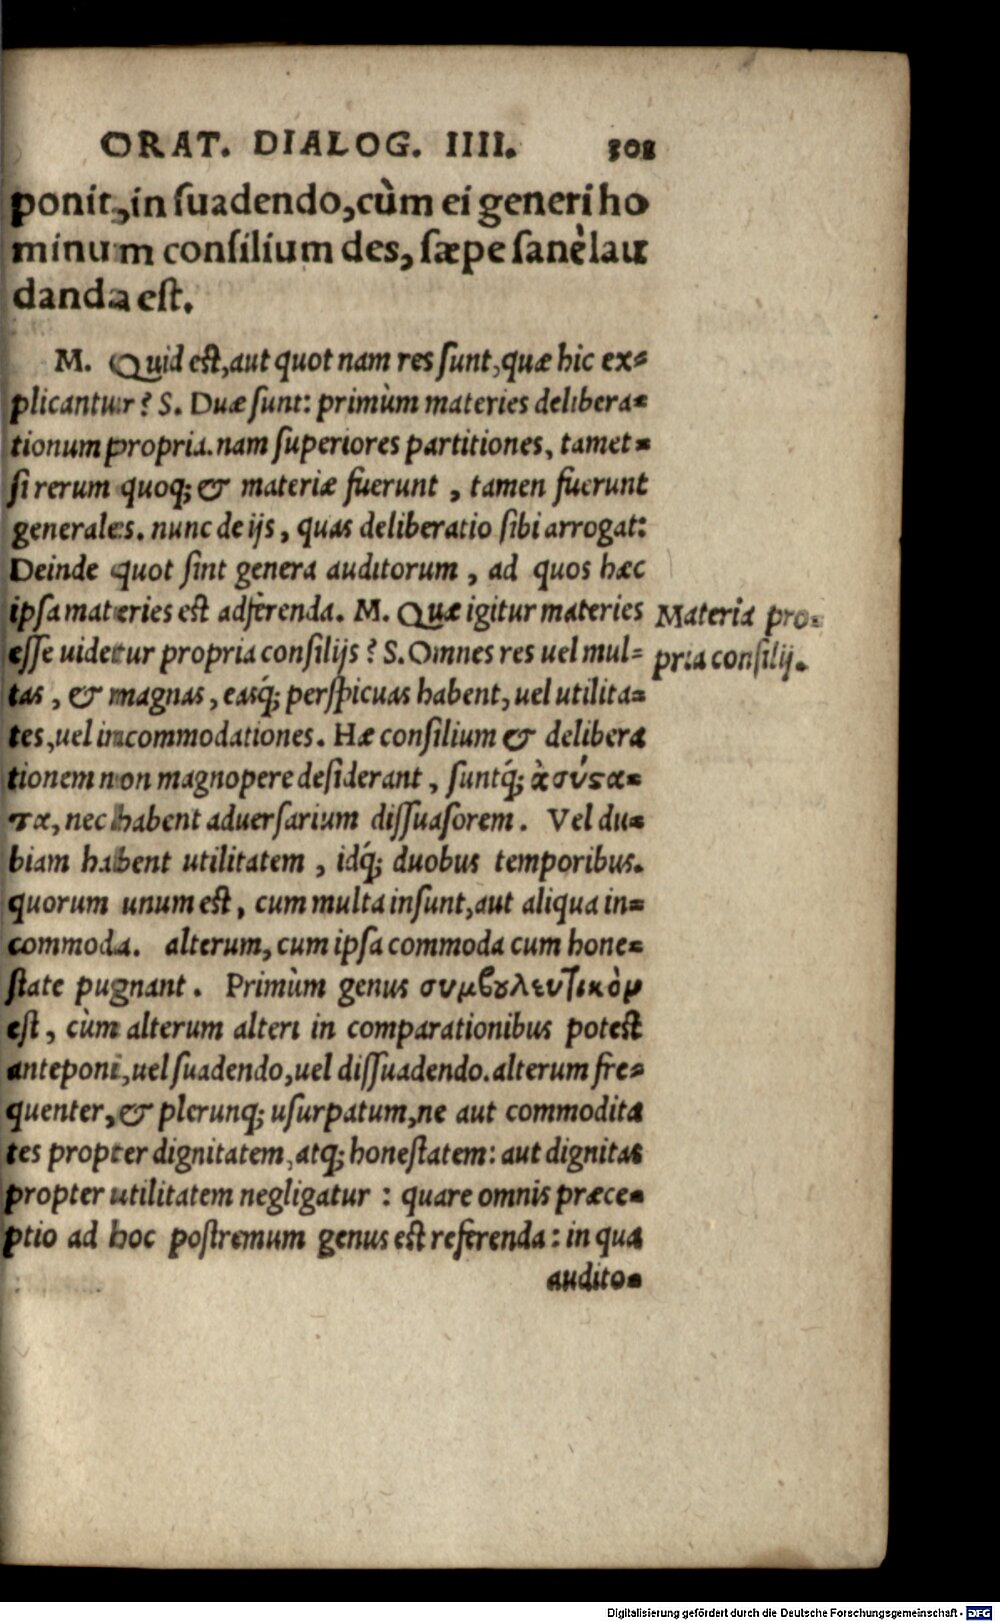 ORAT. DIALOG. IIII. 308
ponit, in ſuadendo, cùm ei generi ho
minum conſilium des, ſæpe ſanè lau
danda eſt.
M. Quid eſt, aut quot nam res ſunt, quæ hic ex-
plicantur? S. Duæ ſunt: primùm materies delibera-
tionum propria. nam ſuperiores partitiones, tamet-
ſi rerum quoq; & materiæ fuerunt, tamen fuerunt
generales. nunc de ijs, quas deliberatio ſibi arrogat:
Deinde quot ſint genera auditorum, ad quos hæc
ipſa materies eſt adferenda. M. Quæ igitur materies
Materia pro-
eſſe uidetur propria conſilijs? S. Omnes res uel mul-
pria conſilij.
tas, & magnas, easq́; perſpicuas habent, uel utilita-
tes, uel incommodationes. Hæ conſilium & delibera
tionem non magnopere deſiderant, ſuntq́; ἀσύϛα-
τα, nec habent aduerſarium diſſuaſorem. Vel du-
biam habent utilitatem, idq́; duobus temporibus.
quorum unum eſt, cum multa inſunt, aut aliqua in-
commoda. alterum, cum ipſa commoda cum hone-
ſtate pugnant. Primùm genus συμβȣλευτικὸν
eſt, cùm alterum alteri in comparationibus poteſt
anteponi, uel ſuadendo, uel diſſuadendo. alterum fre-
quenter, & plerunq; uſurpatum, ne aut commodita
tes propter dignitatem, atq; honeſtatem: aut dignitas
propter utilitatem negligatur: quare omnis præce-
ptio ad hoc poſtremum genus eſt referenda: in qua
audito-
Digitalisierung gefördert durch die Deutsche Forschungsgemeinschaft - DFG